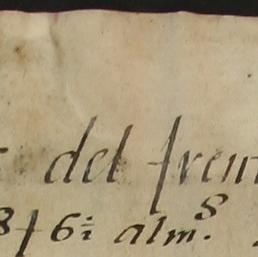 del fren
8 f 6 i/2 alm.s